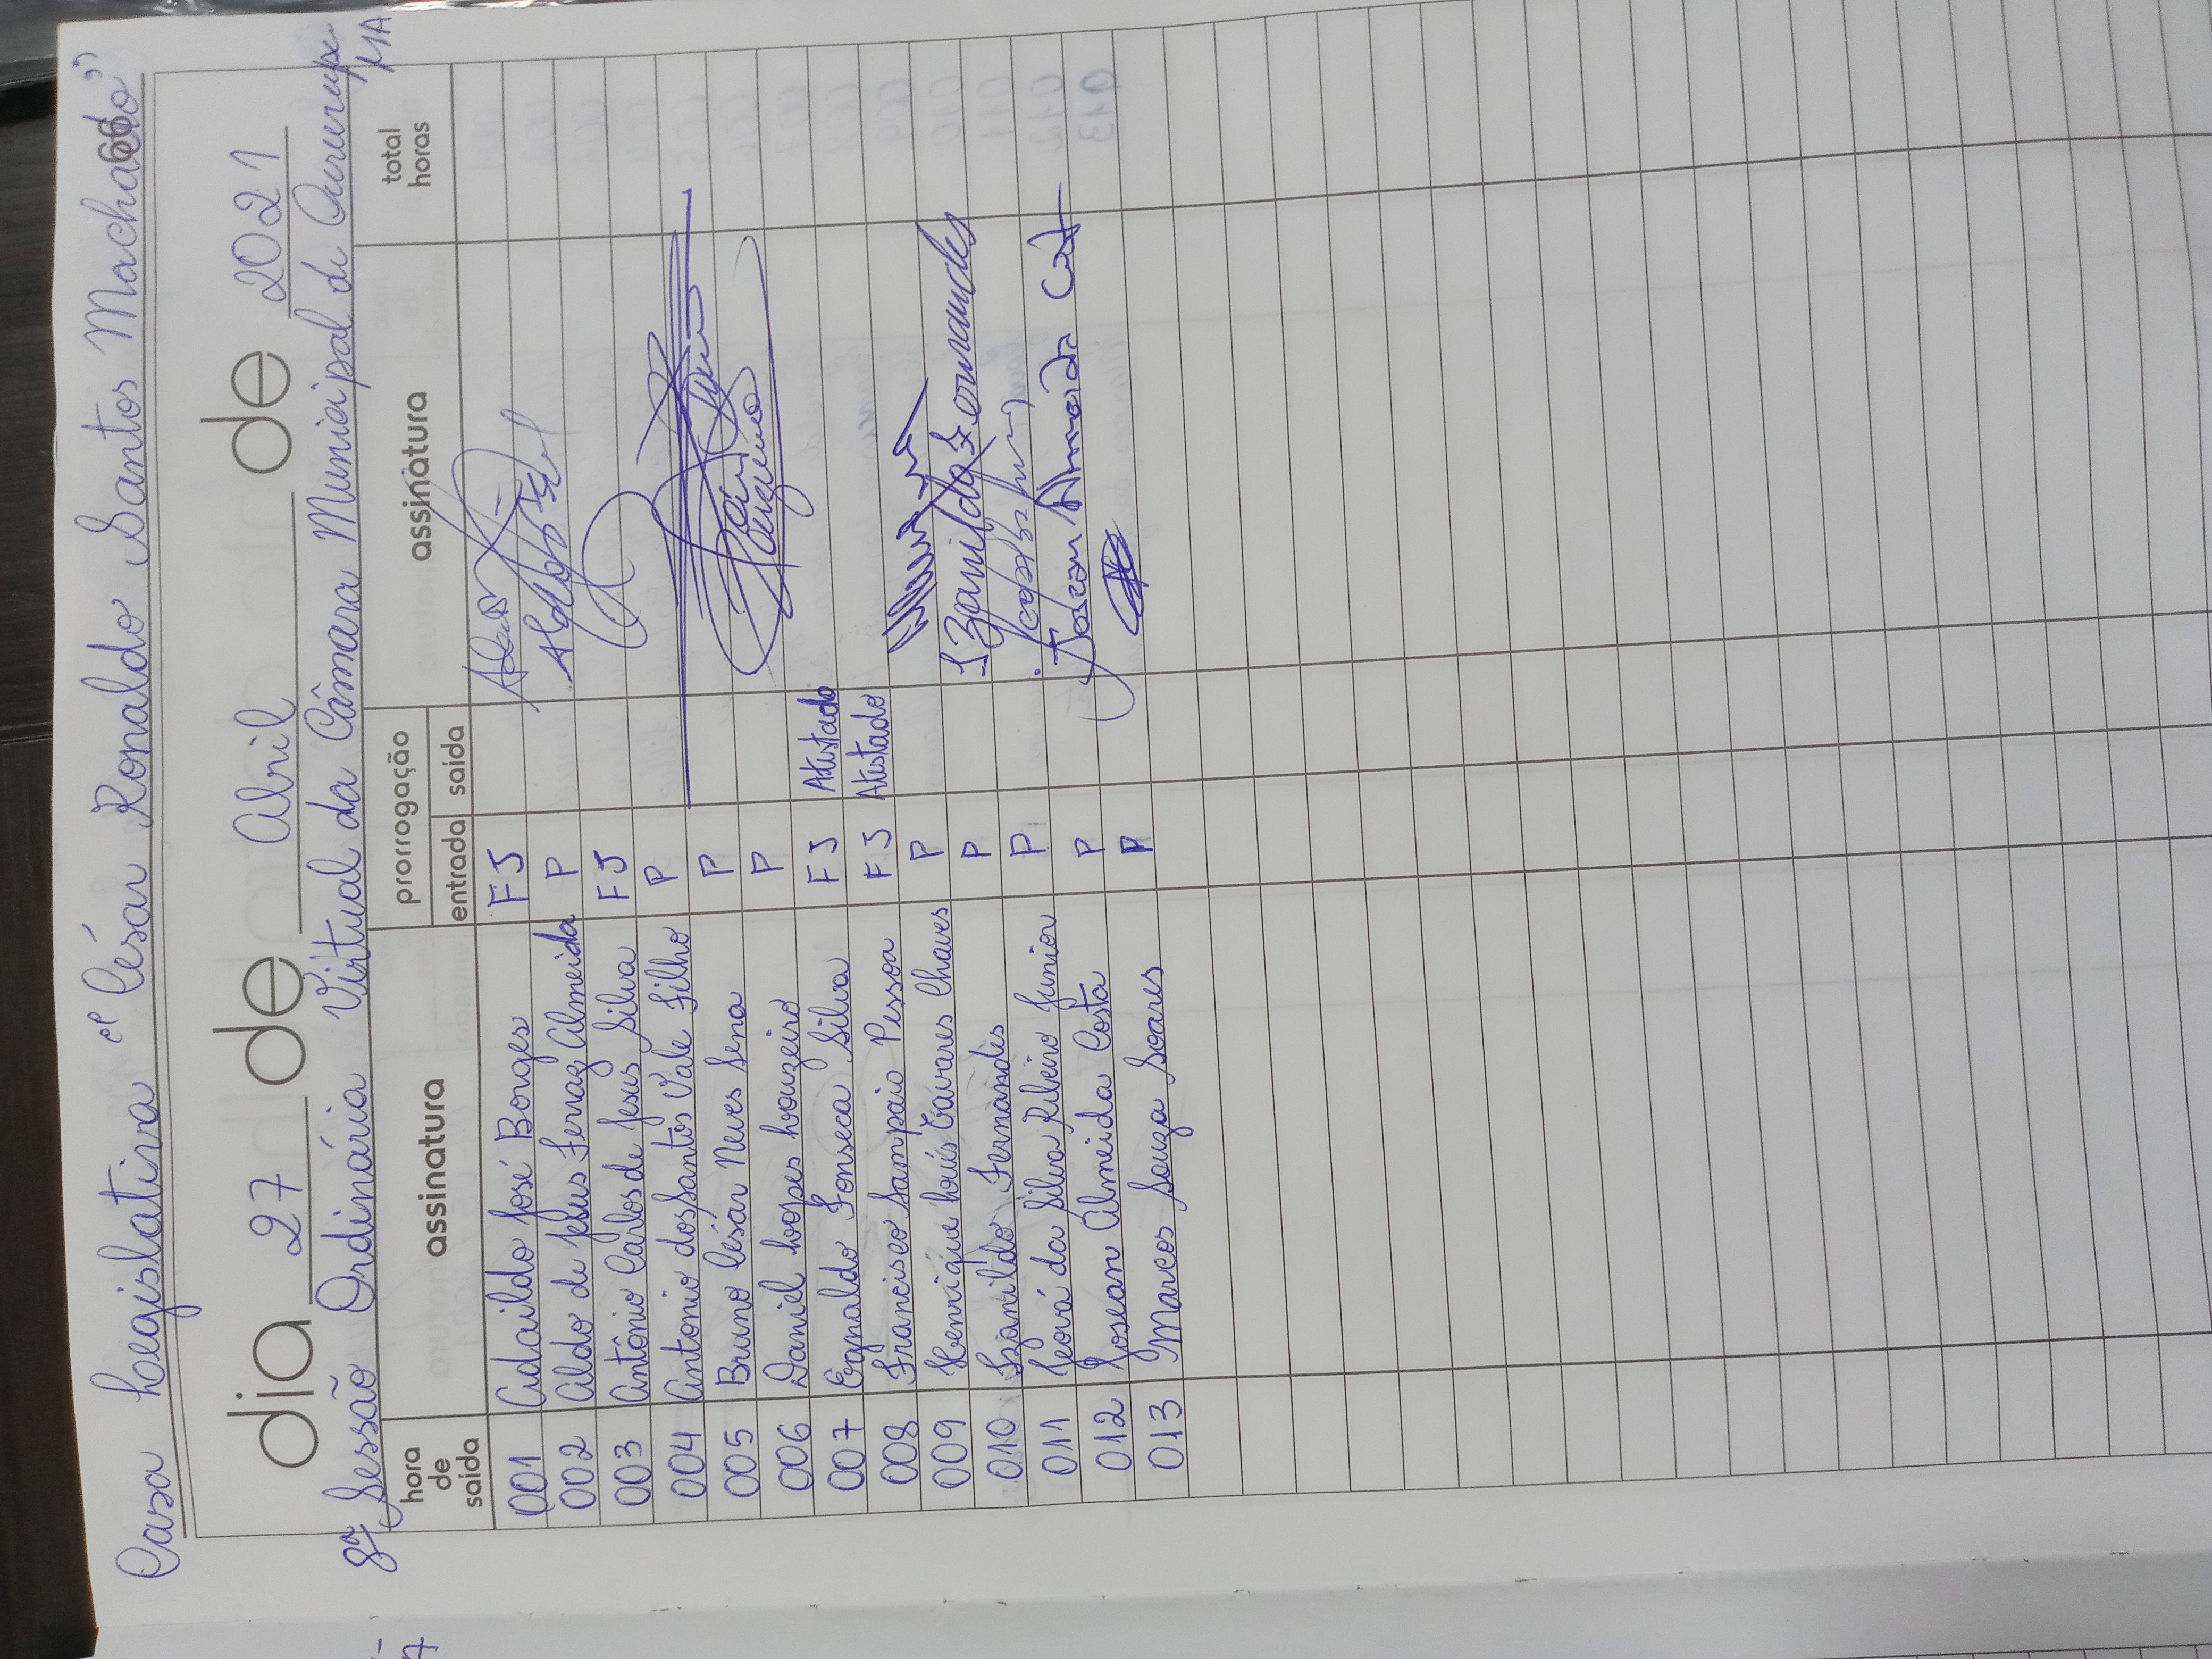 Casa Legislativa "César Ronaldo Santos Machado"
dia 27 de Abril de 2021
8ª Sessão Ordinária Virtual da Câmara Municipal de MA
hora de saída assinatura prorrogação entrada saída assinatura total horas
001 Adaildo José Borges FJ
002 Aldo de Jesus Ferraz Almeida P
003 Antônio Carlos de Jesus Silva FJ
004 Antonio dos Santos Vale Filho P
005 Bruno César Neves Sena P
006 Daniel Lopes Louzeiro P
007 Egnaldo Fonseca Silva FJ Atestado
008 Francisco Sampaio Pessoa FJ Atestado
009 Henrique Luís Tavares Chaves P
010 Izanildo Fernandes P Izanildo Fernandes
011 Jeová da Silva Ribeiro Junior P
012 Josean Almeida Costa P Josean Almeida
013 Marcos Souza Soares P